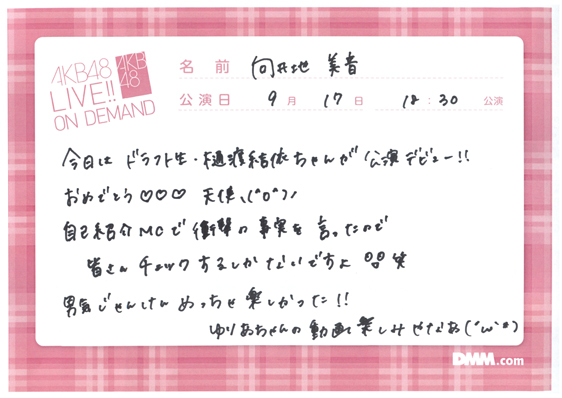 AKB48
LIVE!!
ON DEMAND
AKB
48
名前 向井地 美音
公演日 9月 17日 18:30 公演
今日は ドラフト生・樋渡結依ちゃんが 公演デビュー!!
おめでとう♡♡♡ 天使\(^o^)/
自己紹介MCで 衝撃の 事実を 言ったので
皆さん チェックするしかないですよ 笑
男気じゃんけん めっちゃ 楽しかった!!
ゆりあちゃんの 動画 楽しみやなぁ(´ω`*)
DMM.com